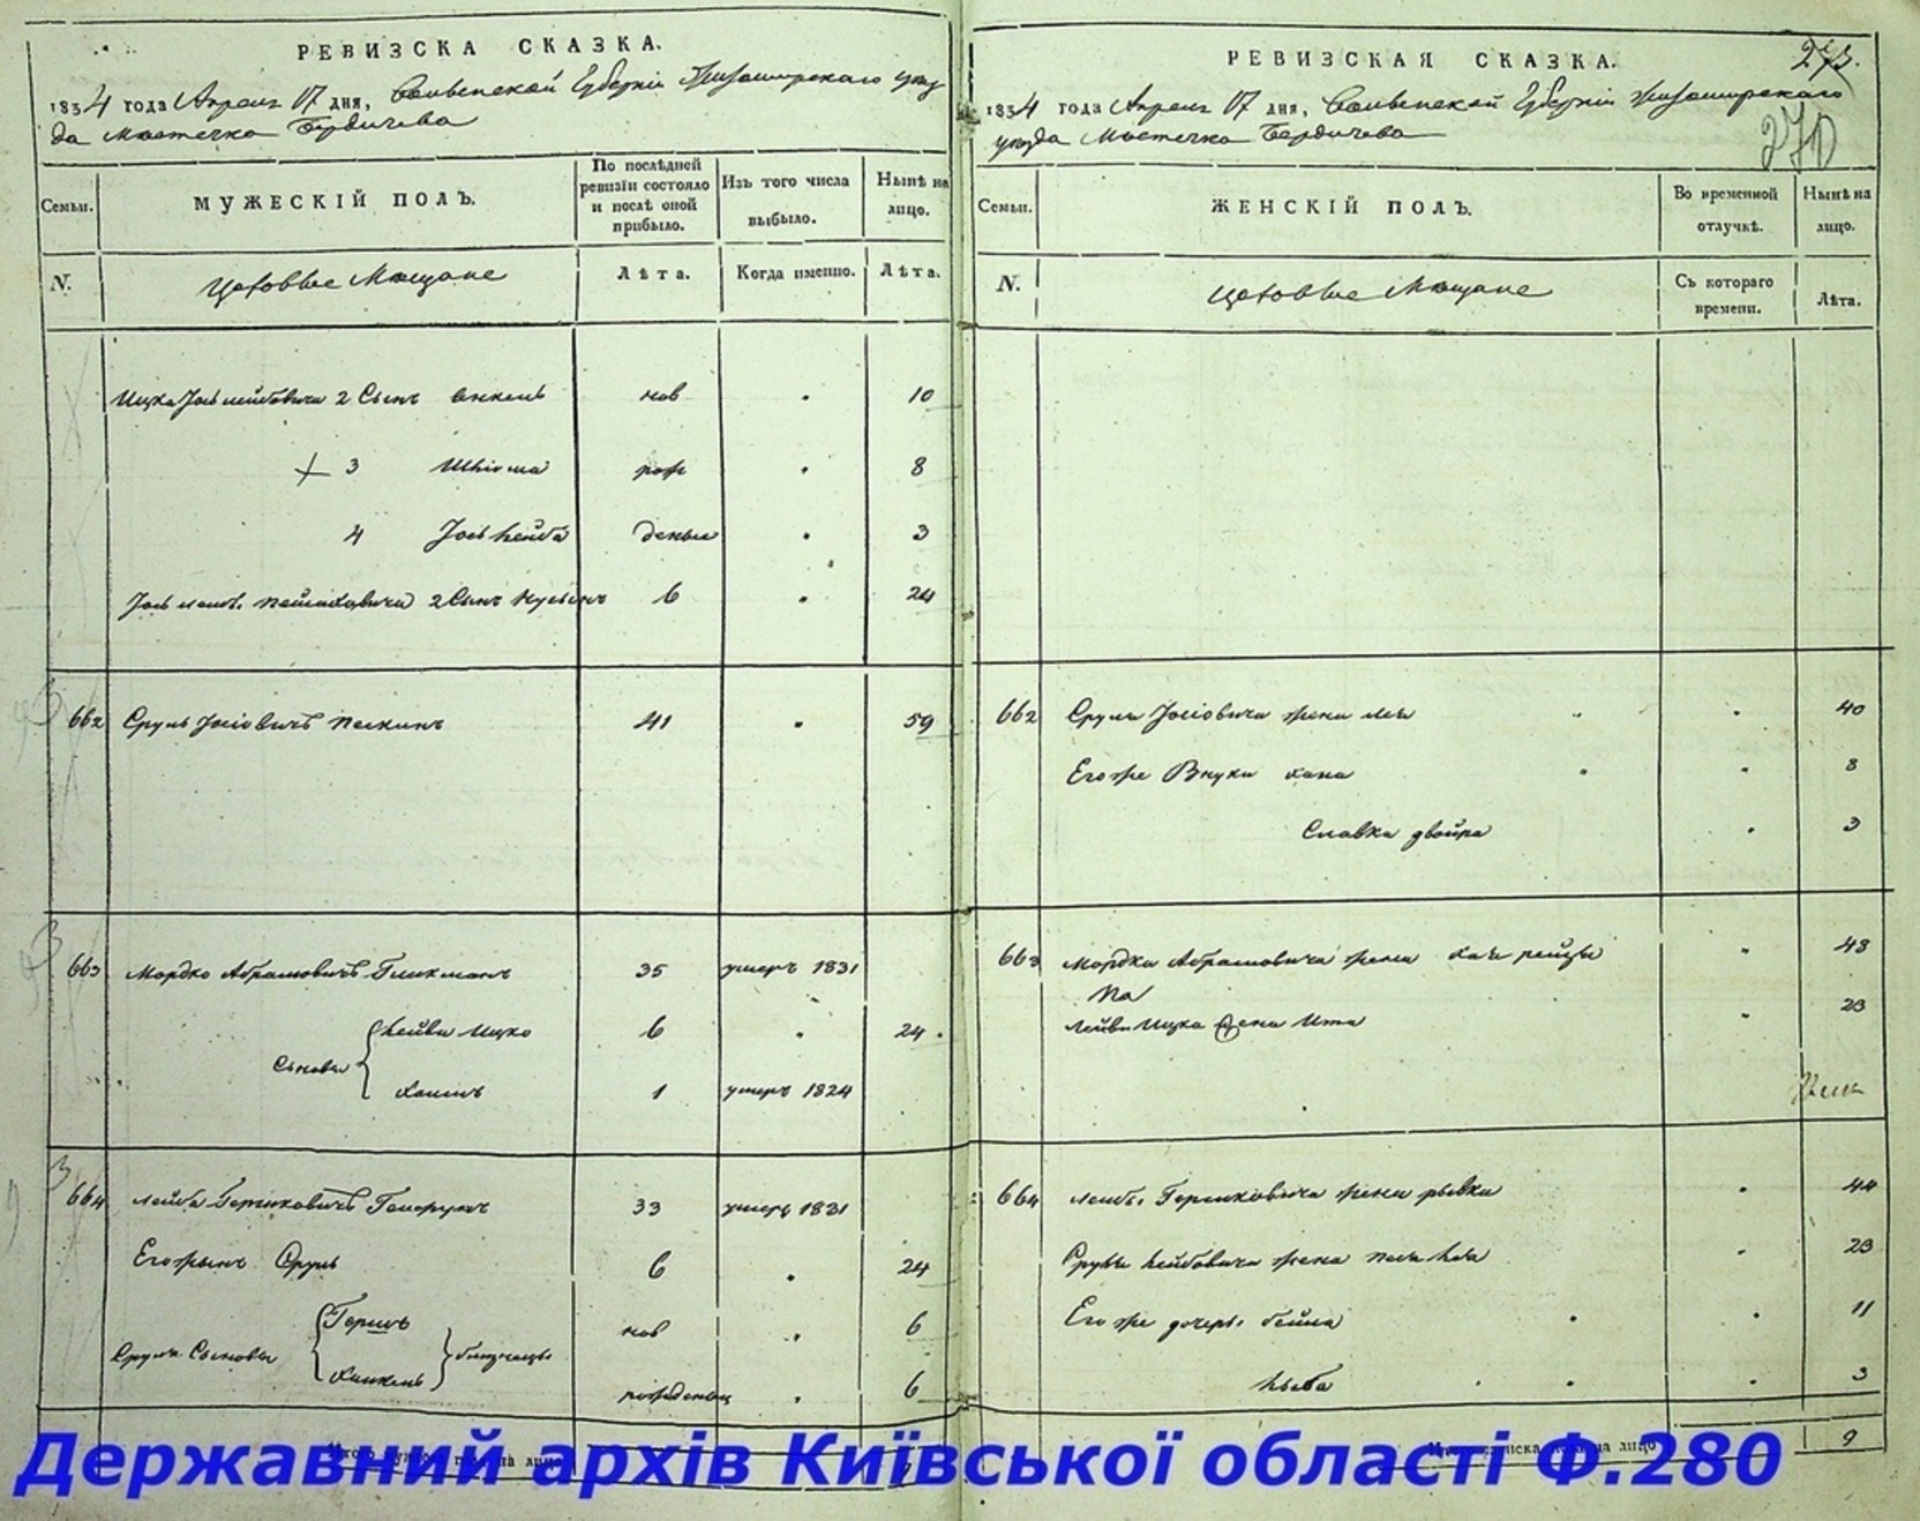 РЕВИЗСКА СКАЗКА.
1834 года Апреля 17 дня, Волынской Губерніи Житомирскаго уѣз
да Мѣстечка Бердичева
Семьи.
МУЖЕСКІЙ ПОЛЪ.
По послѣдней ревизіи состояло и послѣ оной прибыло.
Изъ того числа выбыло.
Нынѣ на лицо.
N.
Цеховые Мещане
Лѣта.
Когда именно.
Лѣта.
Ицка Іось Лейбовича 2 Сынъ нов 10
3 рож 8
4 Іось Лейба денные 3
2 Сынъ 6 24
662 Сруль Іосіовичъ 41 59
663 Мордко Абрамовичъ Гликманъ 35 умеръ 1831
Сыновья
Лейви Ицко 6 24
Хаимъ 1 умеръ 1824
664 Лейба Гершковичъ 33 умеръ 1831
Его Сынъ Сруль 6 24
Сруля Сыновья
Гершъ нов 6
близнецы
рожденные 6
РЕВИЗСКАЯ СКАЗКА.
273.
270
1834 года Апреля 17 дня, Волынской Губерніи Житомирскаго
уѣзда Мѣстечка Бердичева
Семьи.
ЖЕНСКІЙ ПОЛЪ.
Во временной отлучкѣ.
Нынѣ на лицо.
N.
Цеховые Мещане
Съ котораго времени.
Лѣта.
662 Сруля Іосіовича жена Лея 40
Его же Внуки Хана 8
Славка двойра 3
663 Мордки Абрамовича жена Хая рейзы 48
Лейви Ицка жена Ита 23
664 Лейбы Гершковича жена рывка 44
Сруля Лейбовича жена 23
Его же дочерь бейла 11
3
9
Державний архів Київської області Ф.280